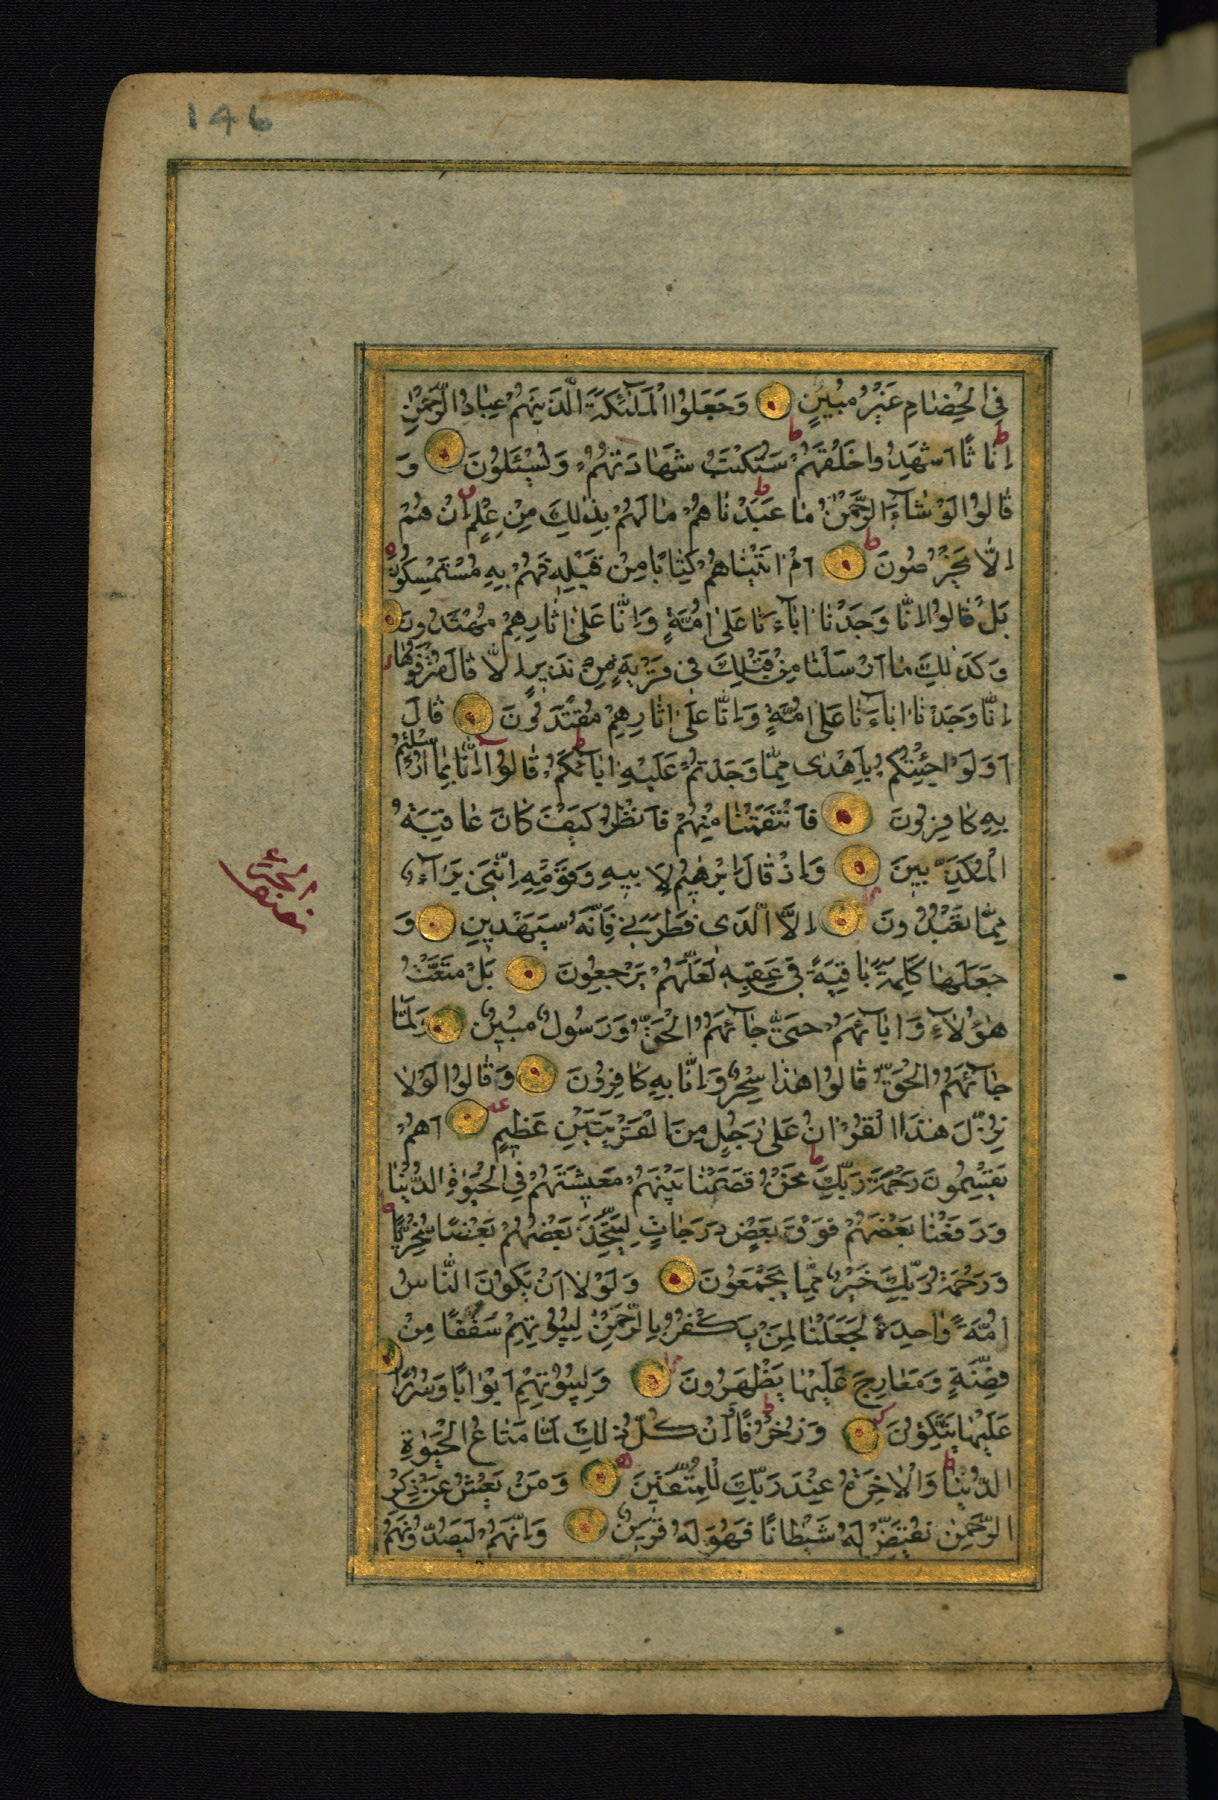 146
فِي الْخِصَامِ غَيْرُ مُبِينٍ وَجَعَلُوا الْمَلَٰٓئِكَةَ الَّذِينَهُمْ عِبَادُ الرَّحْمٰنِ
اِنَاثًا اَشَهِدُوا خَلْقَهُمْ سَتُكْتَبُ شَهَادَتُهُمْ وَيُسْئَلُونَ وَ
قَالُوا لَوْ شَآءَ الرَّحْمٰنُ مَا عَبَدْنَاهُمْ مَا لَهُمْ بِذٰلِكَ مِنْ عِلْمٍ اِنْ هُمْ
اِلَّا يَخْرُصُونَ اَمْ اٰتَيْنَاهُمْ كِتَابًا مِنْ قَبْلِهِ فَهُمْ بِهِ مُسْتَمْسِكُونَ
بَلْ قَالُوا اِنَّا وَجَدْنَا اٰبَآءَنَا عَلٰى اُمَّةٍ وَاِنَّا عَلٰى اٰثَارِهِمْ مُهْتَدُونَ
وَكَذٰلِكَ مَا اَرْسَلْنَا مِنْ قَبْلِكَ فِى قَرْيَةٍ مِنْ نَذِيرٍ اِلَّا قَالَ مُتْرَفُوهَا
اِنَّا وَجَدْنَا اٰبَآءَنَا عَلٰى اُمَّةٍ وَاِنَّا عَلٰى اٰثَارِهِمْ مُقْتَدُونَ قَالَ
اَوَلَوْ جِئْتُكُمْ بِاَهْدٰى مِمَّا وَجَدْتُمْ عَلَيْهِ اٰبَآئَكُمْ قَالُوا اِنَّا بِمَا اُرْسِلْتُمْ
بِهِ كَافِرُونَ فَانْتَقَمْنَا مِنْهُمْ فَانْظُرْ كَيْفَ كَانَ عَاقِبَةُ
الْمُكَذِّبِينَ وَاِذْ قَالَ اِبْرٰهِيمُ لِاَبِيهِ وَقَوْمِهِ اِنَّنِى بَرَآءٌ
مِمَّا تَعْبُدُونَ اِلَّا الَّذِى فَطَرَنِى فَاِنَّهُ سَيَهْدِينِ وَ
جَعَلَهَا كَلِمَةً بَاقِيَةً فِى عَقِبِهِ لَعَلَّهُمْ يَرْجِعُونَ بَلْ مَتَّعْتُ
هٰؤُلَآءِ وَاٰبَآئَهُمْ حَتّٰى جَآئَهُمُ الْحَقُّ وَرَسُولٌ مُبِينٌ وَلَمَّا
جَآئَهُمُ الْحَقُّ قَالُوا هٰذَا سِحْرٌ وَاِنَّا بِهِ كَافِرُونَ وَقَالُوا لَوْلَا
نُزِّلَ هٰذَا الْقُرْاٰنُ عَلٰى رَجُلٍ مِنَ الْقَرْيَتَيْنِ عَظِيمٍ اَهُمْ
يَقْسِمُونَ رَحْمَةَ رَبِّكَ نَحْنُ قَسَمْنَا بَيْنَهُمْ مَعِيشَتَهُمْ فِى الْحَيٰوةِ الدُّنْيَا
وَرَفَعْنَا بَعْضَهُمْ فَوْقَ بَعْضٍ دَرَجَاتٍ لِيَتَّخِذَ بَعْضُهُمْ بَعْضًا سُخْرِيًّا
وَرَحْمَةُ رَبِّكَ خَيْرٌ مِمَّا يَجْمَعُونَ وَلَوْلَا اَنْ يَكُونَ النَّاسُ
اُمَّةً وَاحِدَةً لَجَعَلْنَا لِمَنْ يَكْفُرُ بِالرَّحْمٰنِ لِبُيُوتِهِمْ سَقْفًا مِنْ
فِضَّةٍ وَمَعَارِجَ عَلَيْهَا يَظْهَرُونَ وَلِبُيُوتِهِمْ اَبْوَابًا وَسُرُرًا
عَلَيْهَا يَتَّكِؤُنَ وَزُخْرُفًا وَاِنْ كُلُّ ذٰلِكَ لَمَّا مَتَاعُ الْحَيٰوةِ
الدُّنْيَا وَالْاٰخِرَةُ عِنْدَ رَبِّكَ لِلْمُتَّقِينَ وَمَنْ يَعْشُ عَنْ ذِكْرِ
الرَّحْمٰنِ نُقَيِّضْ لَهُ شَيْطَانًا فَهُوَ لَهُ قَرِينٌ وَاِنَّهُمْ لَيَصُدُّونَهُمْ
نصف الجزء